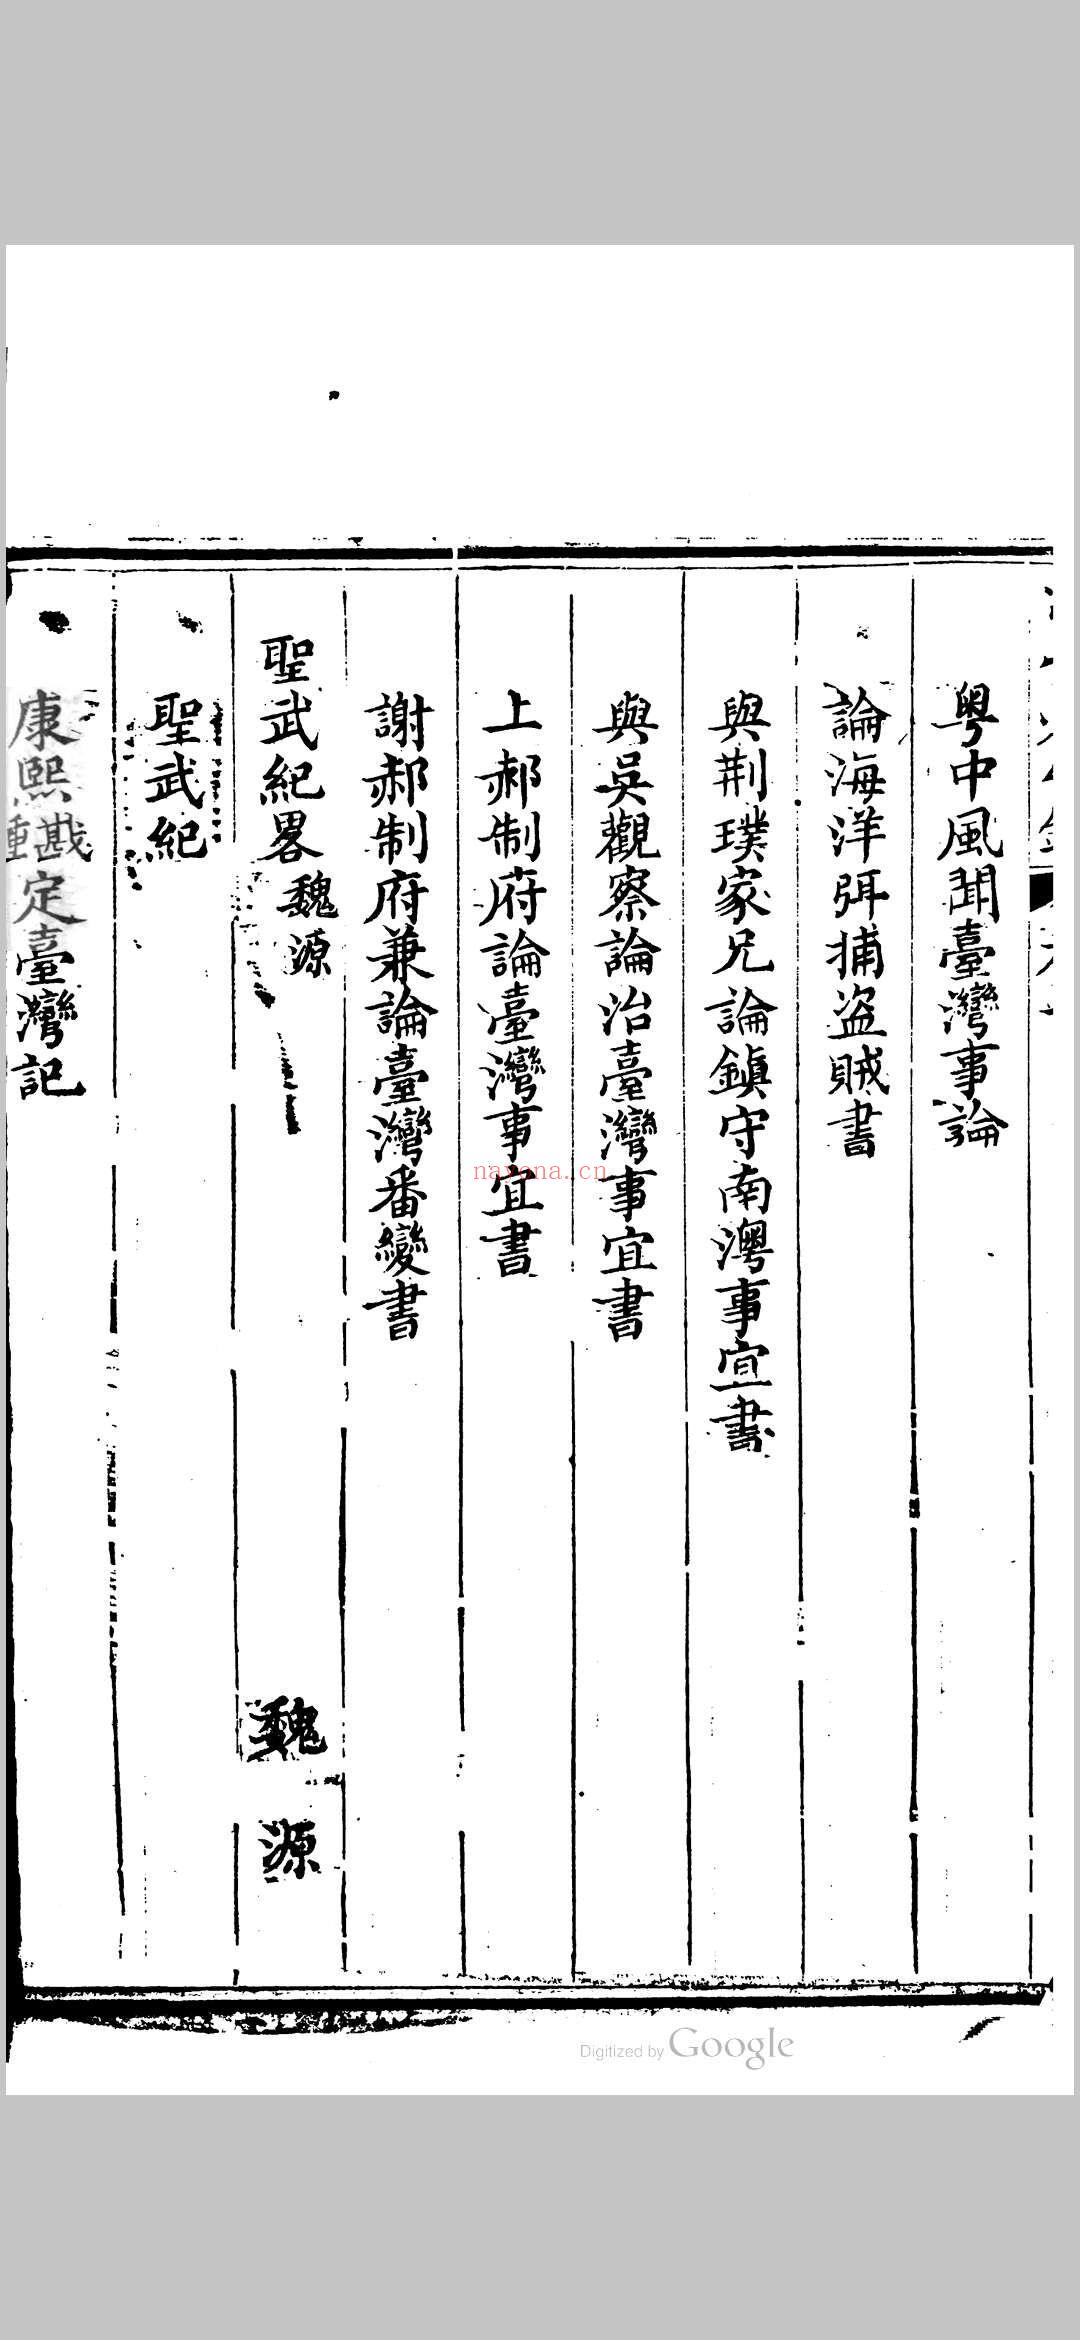 粤中風聞臺灣事論
論海洋弭捕盜賊書
與荆璞家兄論鎭守南澳事宜書
與吳觀察論治臺灣事宜書
上郝制府論臺灣事宜書
謝郝制府兼論臺灣番變書
聖武紀畧 魏源
魏源
聖武紀
康熙戡定臺灣記
nayona.cn
Digitized by Google